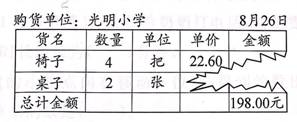 购货单位：光明小学 8月26日
货名 数量 单位 单价 金额
椅子 4 把 22.60
桌子 2 张
总计金额 198.00元